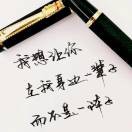 我想让你
在我身边一辈子
而不是一阵子